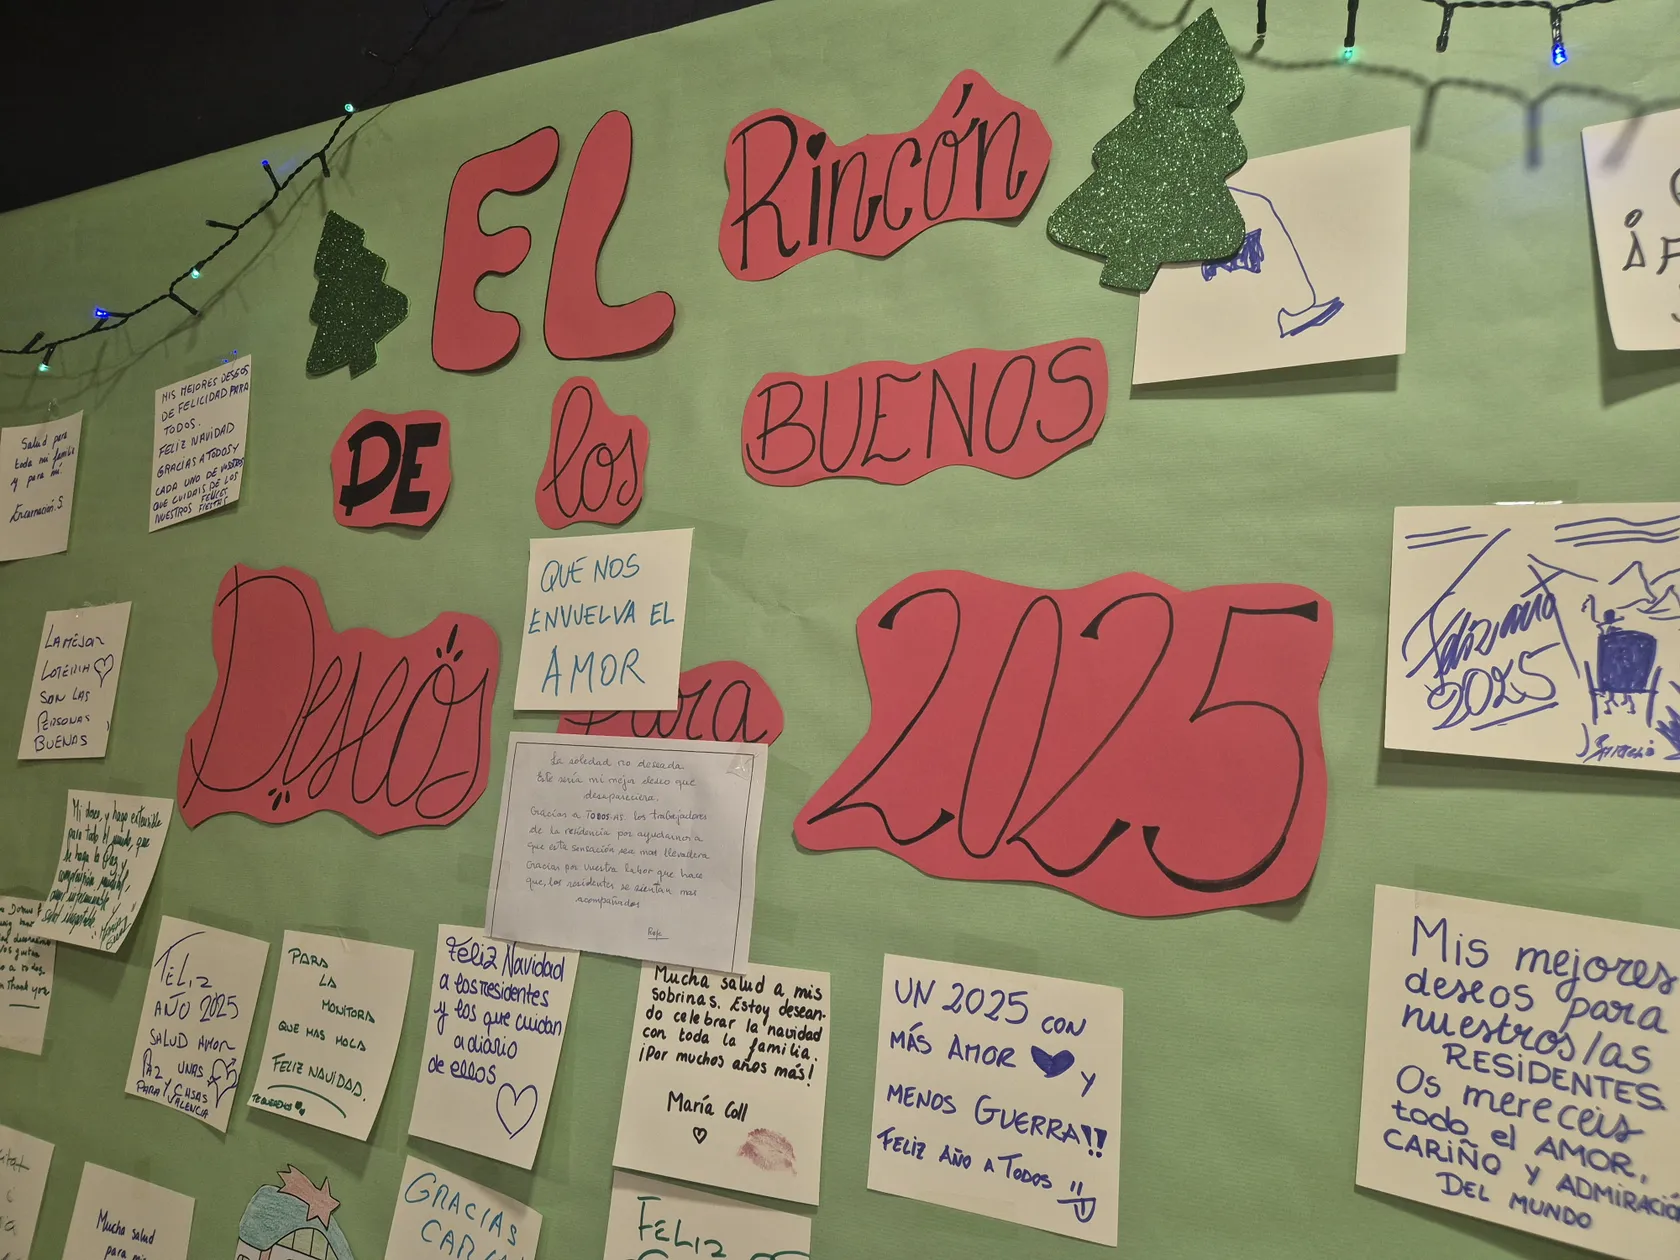 EL Rincón
DE los BUENOS
Deseos para 2025
Salud para
toda mi familia
y para mí
Encarnación S.
MIS MEJORES DESEOS
DE FELICIDAD PARA
TODOS.
FELIZ NAVIDAD
GRACIAS A TODOS Y
CADA UNO DE VOSOTROS
QUE CUIDAIS DE LOS
NUESTROS FELICES
FIESTAS
QUE NOS
ENVUELVA EL
AMOR
LA MEJOR
LOTERIA
SON LAS
PERSONAS
BUENAS
La soledad no deseada
Este sería mi mejor deseo que
desapareciera.
Gracias a TODOS-AS los trabajadores
de la residencia por ayudarnos a
que esta sensación sea mas llevadera
Gracias por vuestra labor que hace
que, los residentes se sientan mas
acompañados
Feliz año
2025
Mi deseo, y hago extensible
para todo el mundo, que
se haga la Paz y
FELIZ
AÑO 2025
SALUD AMOR
PAZ Y UNAS
PARA CASAS
VALENCIA
PARA
LA
MONITORA
QUE MAS MOLA
FELIZ NAVIDAD.
TE QUEREMOS
Feliz Navidad
a los residentes
y los que cuidan
a diario
de ellos
Mucha salud a mis
sobrinas. Estoy desean-
do celebrar la navidad
con toda la familia.
¡Por muchos años más!
María Coll
UN 2025 CON
MÁS AMOR Y
MENOS GUERRA!!
FELIZ AÑO A TODOS
Mis mejores
deseos para
nuestros/as
RESIDENTES.
Os mereceis
todo el AMOR,
CARIÑO Y ADMIRACIÓ
DEL MUNDO
Mucha salud
para mis
GRACIAS
FELIZ